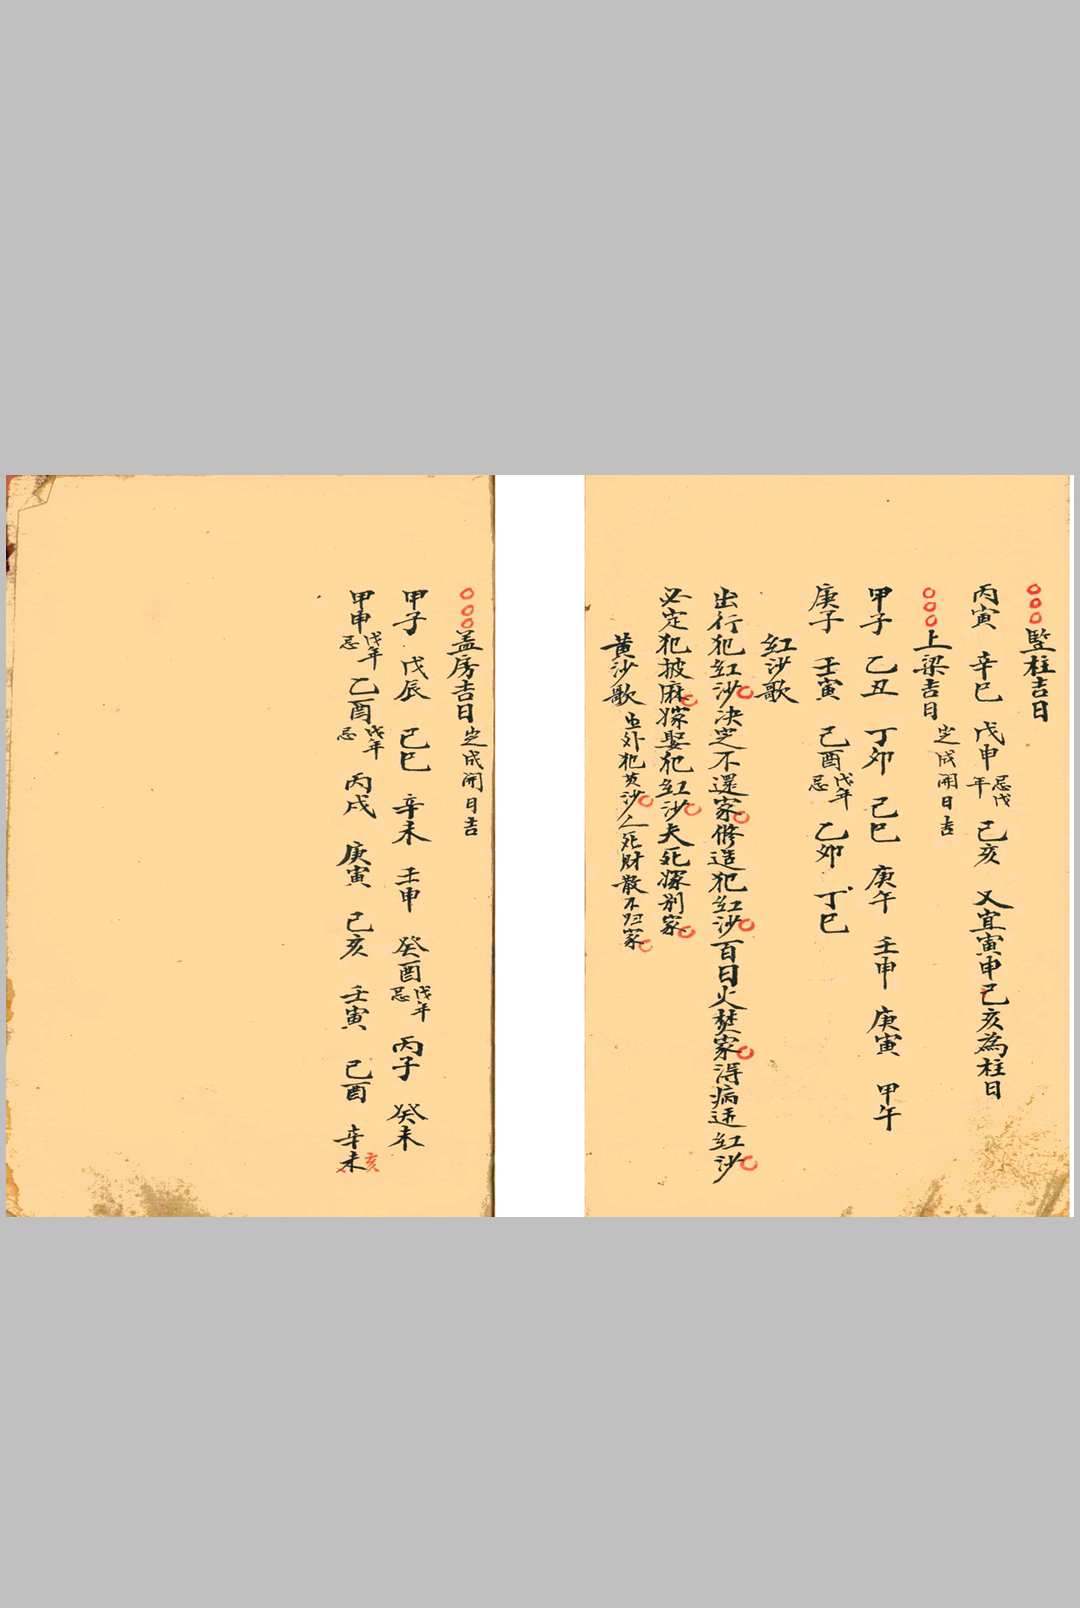 ○○○竪柱吉日
丙寅 辛巳 戊申忌戊年 己亥 又宜寅申己亥為柱日
○○○上梁吉日 定成開日吉
甲子 乙丑 丁卯 己巳 庚午 壬申 庚寅 甲午
庚子 壬寅 己酉戊年忌 乙卯 丁巳
紅沙歌
出行犯紅沙決定不還家修造犯紅沙百日火焚家得病逢紅沙
必定犯披麻嫁娶犯紅沙夫死深别家
黄沙歌 出外犯黄沙人死財散不归家
○○○盖房吉日 定成開日吉
甲子 戊辰 己巳 辛未 壬申 癸酉戊年忌 丙子 癸未
甲申戊年忌 乙酉戊年忌 丙戌 庚寅 己亥 壬寅 己酉 辛未亥